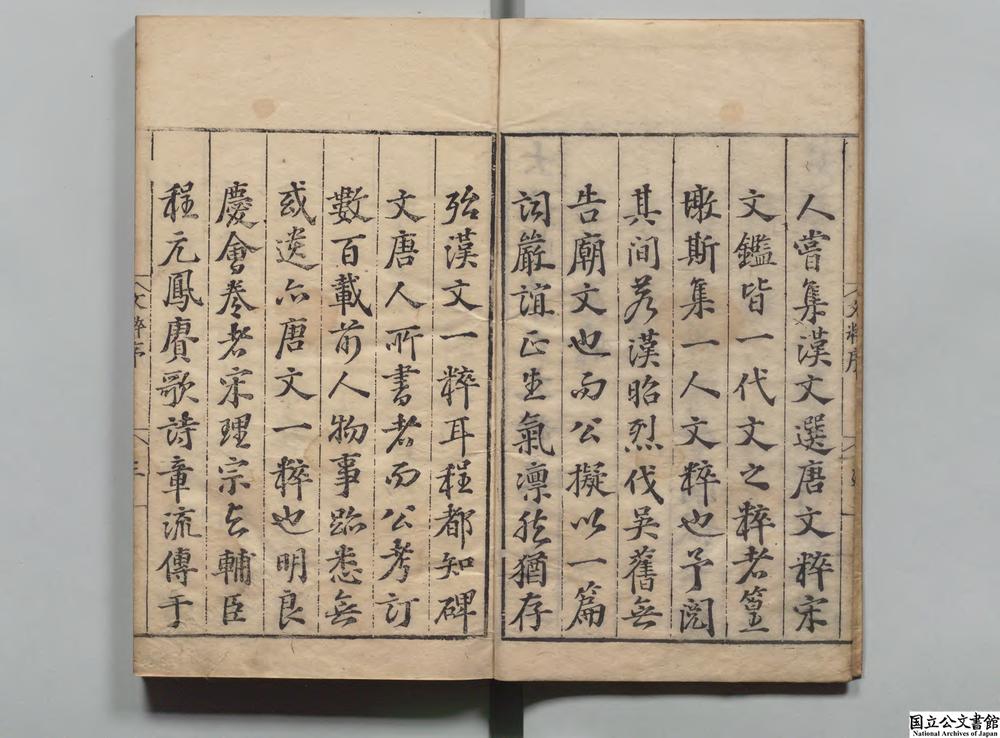 人嘗集漢文選唐文粹宋
文鑑皆一代文之粹者篁
墩斯集一人文粹也予閱
其間若漢昭烈伐吳舊無
告廟文也而公擬以一篇
詞嚴誼正生氣凛然猶存
殆漢文一粹耳程都知碑
文唐人所書者而公考訂
數百載前人物事跡悉無
或遺亦唐文一粹也明良
慶會卷者宋理宗与輔臣
程元鳳賡歌詩章流傳于
文粹序
文粹序
三
国立公文書館
National Archives of Japan